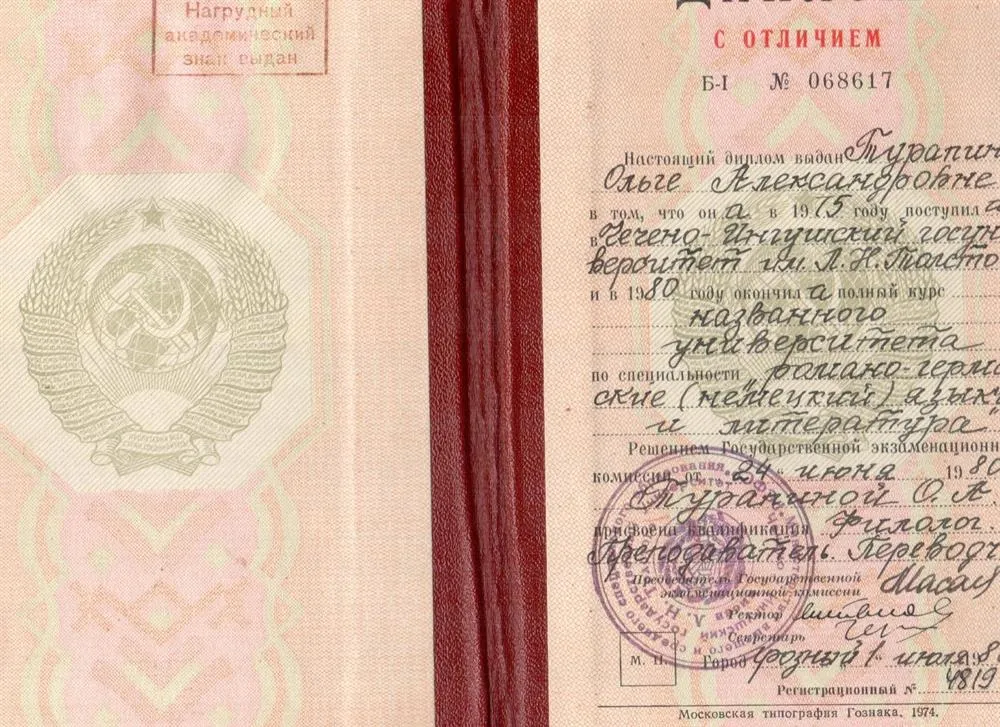 Нагрудный
академический
знак выдан
С ОТЛИЧИЕМ
Б-I № 068617
Настоящий диплом выдан Турапин
Ольге Александровне
в том, что он а в 1975 году поступил а
в Чечено-Ингушский госун
верситет им. Л.Н. Толсто
и в 1980 году окончил а полный курс
названного
университета
по специальности „романо-герма
ские (немецкий) язык
и литература"
Решением Государственной экзаменационн
комиссии от „24" июня 1980
Турапиной О. А
присвоена квалификация Филолог.
Преподаватель. Переводч
Председатель Государственной
экзаменационной комиссии
Ректор
Секретарь
М. П. Город Грозный 1" июля 198
Регистрационный № 4819
Московская типография Гознака. 1974.